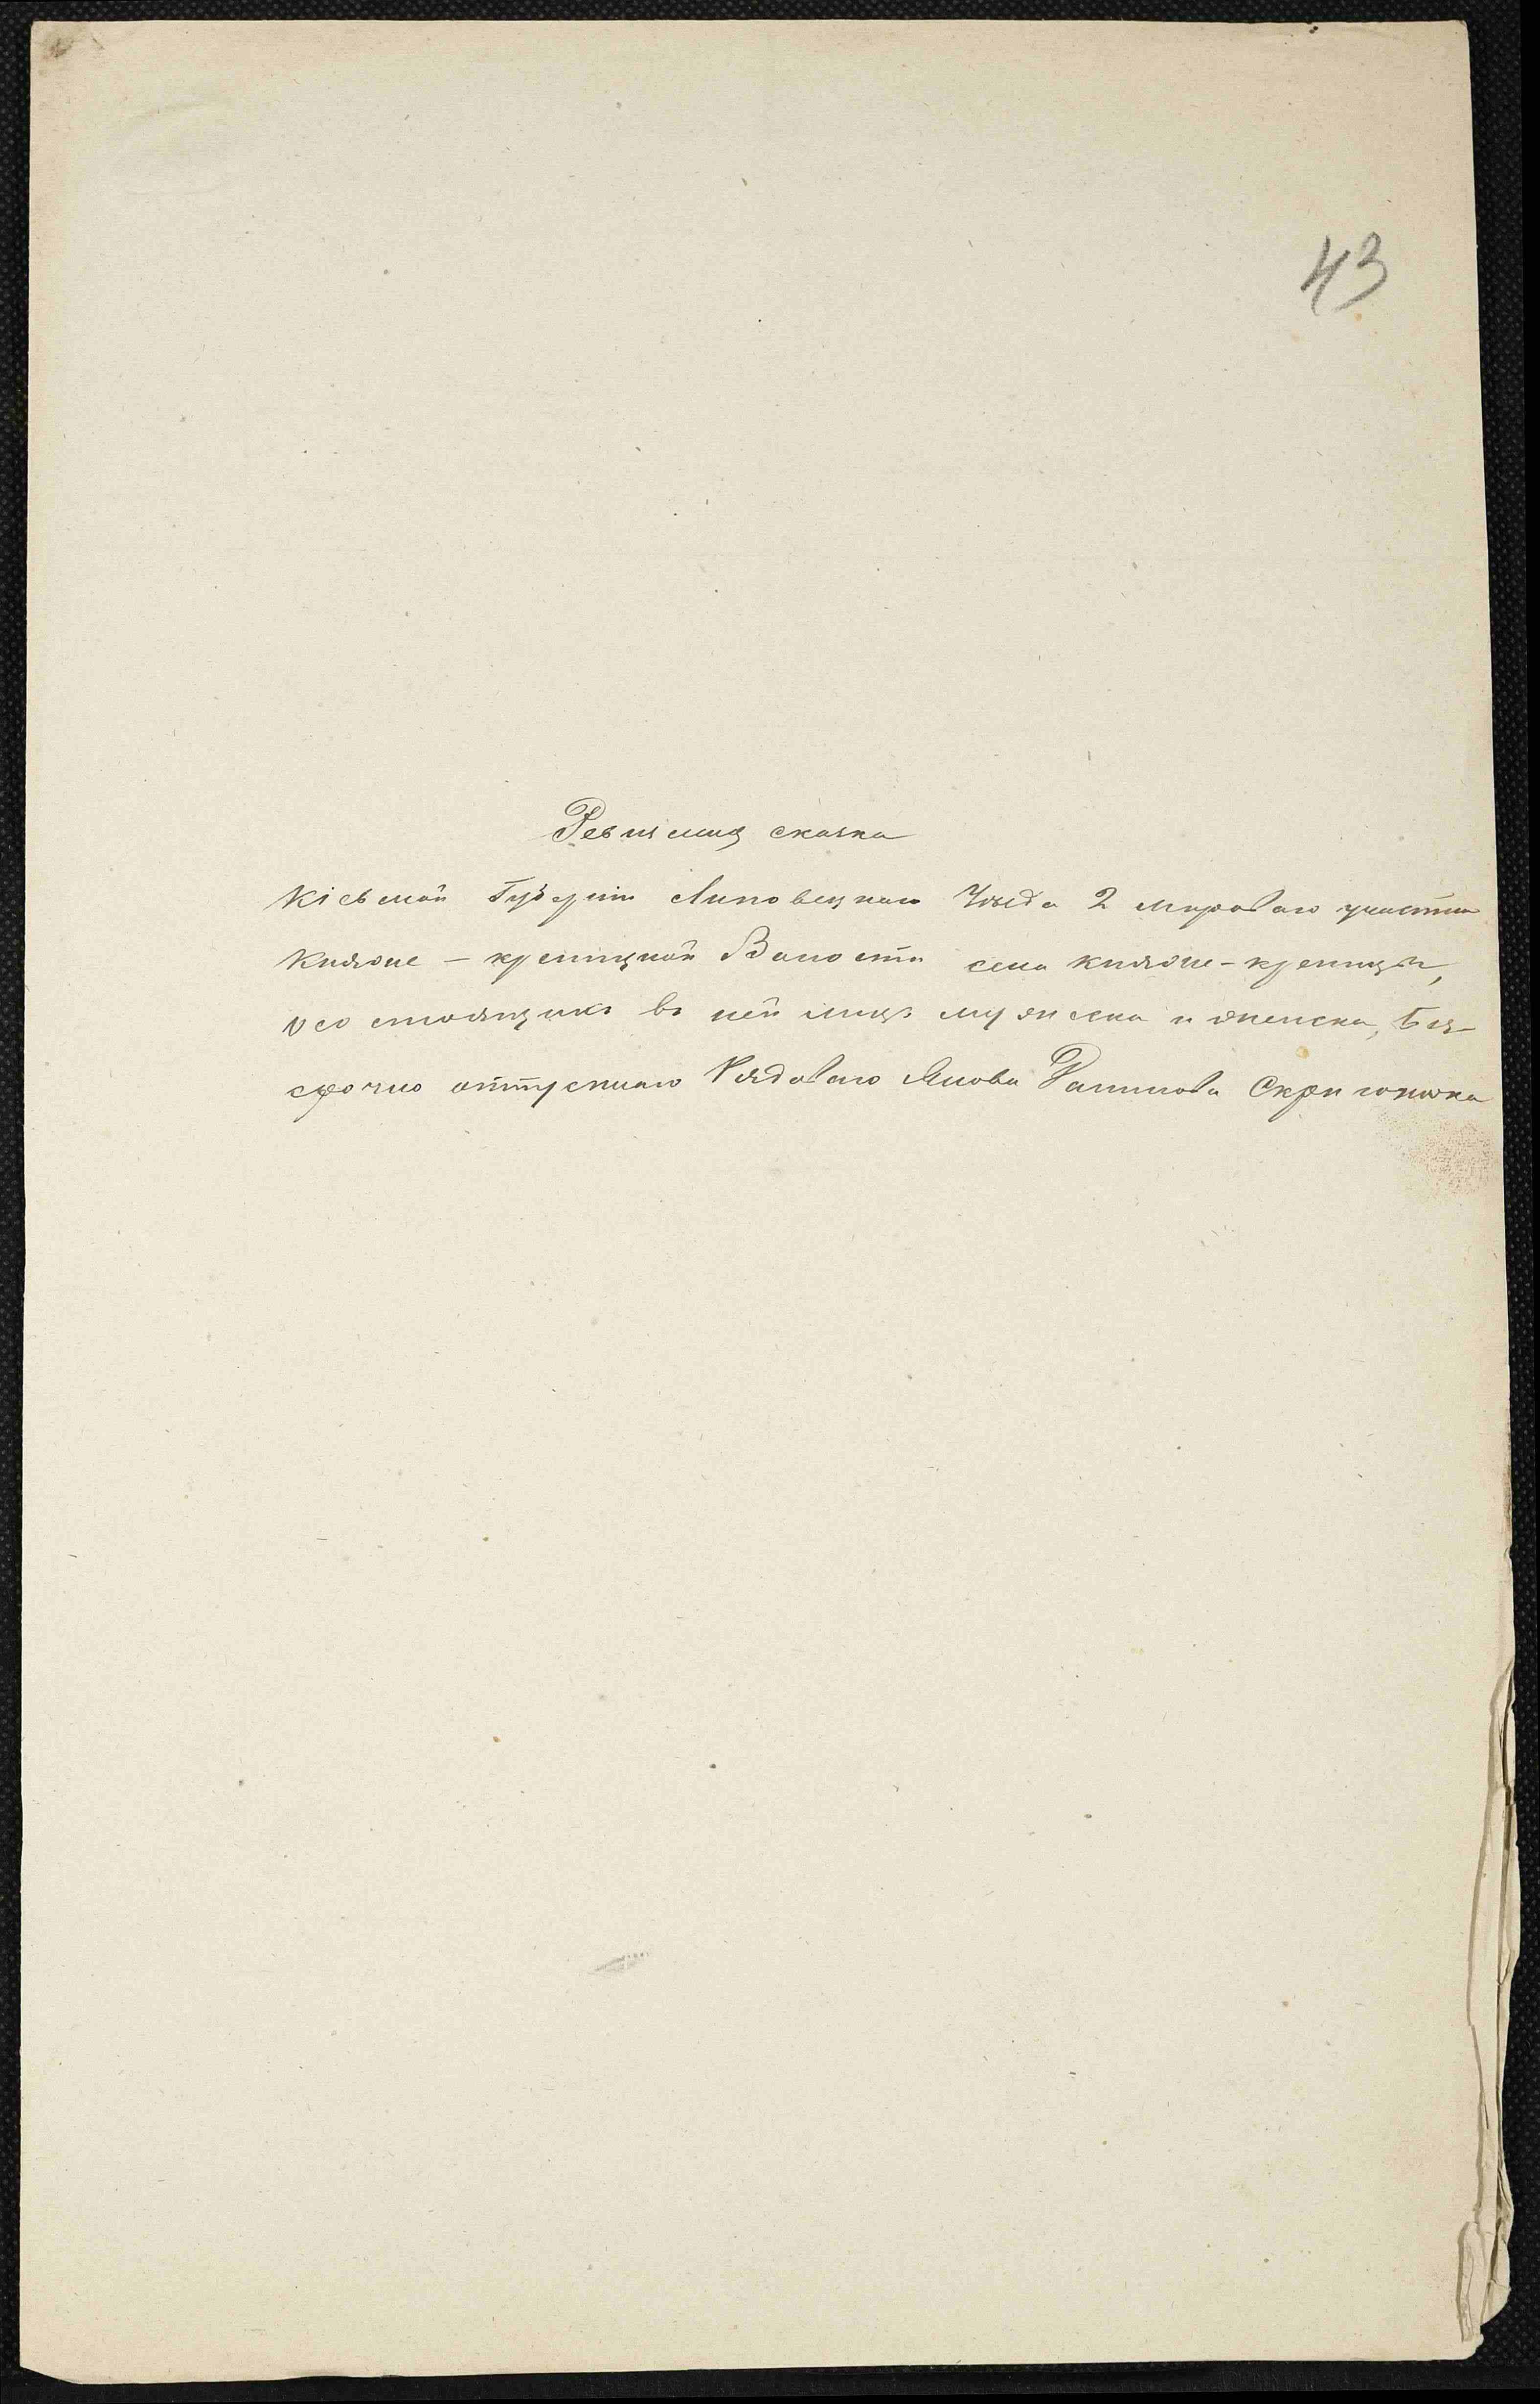 43
Ревизская сказка
Кіевской Губерніи Липовецкаго Уѣзда 2 мироваго участка
Княже-криницкой Волости села княже-криницы,
о состоящихъ въ ней лицъ мужеска и женска, Без-
срочно отпускнаго Рядоваго Якова